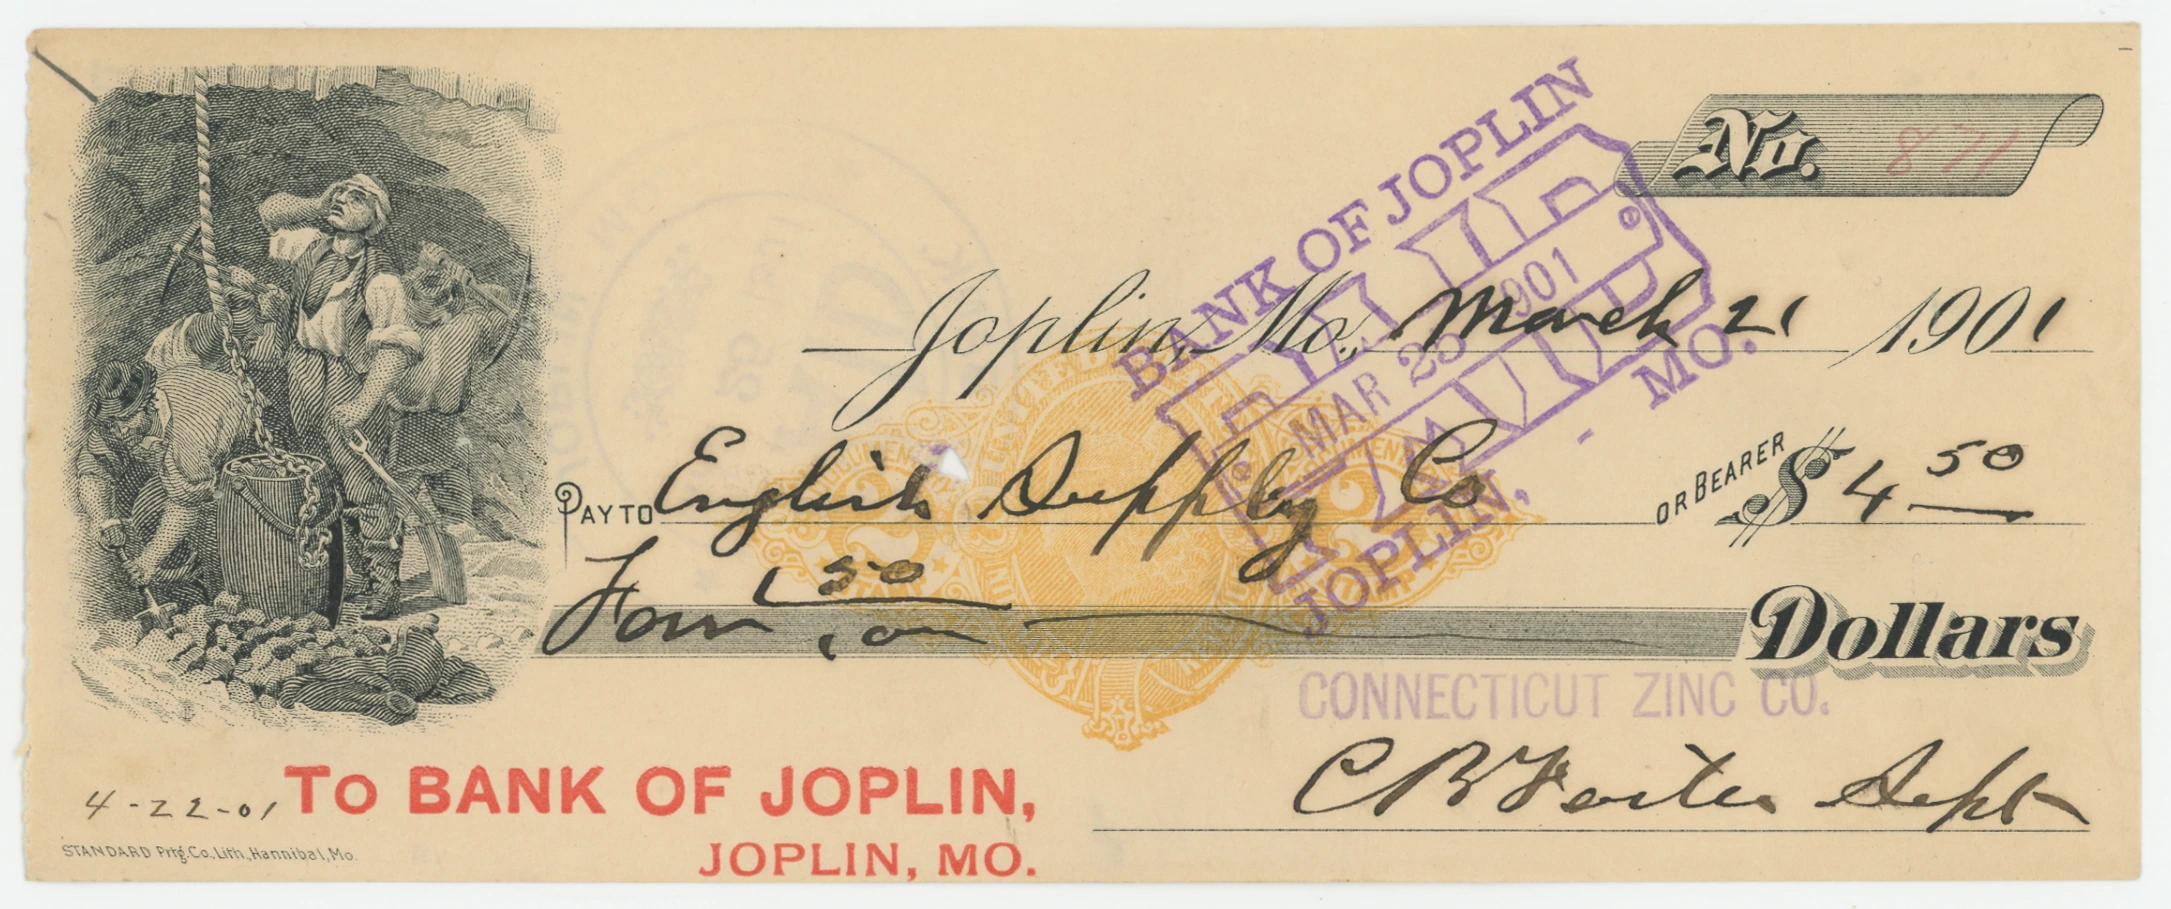 No. 871
BANK OF JOPLIN
PAID
MAR 25 1901
PAID
JOPLIN, MO.
Joplin, Mo., March 21 1901
PAY TO English Supply Co OR BEARER $4 50
Four 50/100 Dollars
CONNECTICUT ZINC CO.
C B Foster Supt
4-22-01 TO BANK OF JOPLIN,
JOPLIN, MO.
STANDARD Prtg. Co., Lith., Hannibal, Mo.